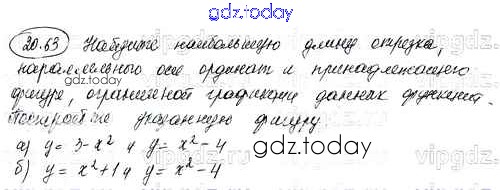 gdz.today
20.63 Найдите наибольшую длину отрезка,
параллельного оси ординат и принадлежащего
фигуре, ограниченной графиками данных функций.
Постройте указанную фигуру
gdz.today
а) y = 3 - x² и y = x² - 4
б) y = x² + 1 и y = x² - 4
vipgdz